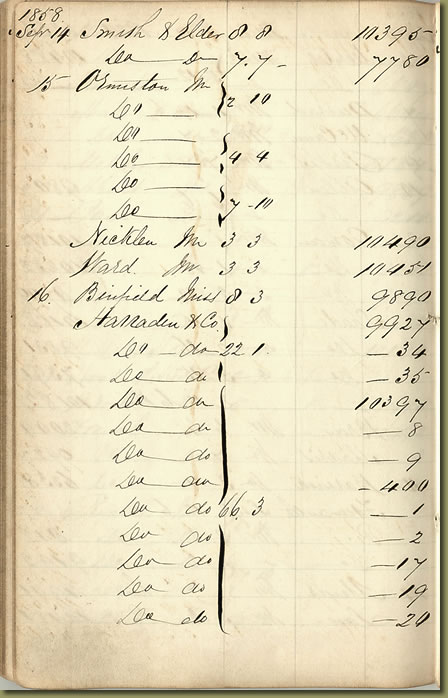 1858.
Sepr 14 Smith & Elder 8 8 10395
Do Do 7.7- 7780
15 Ormiston Mr
Do 2 10
Do
Do 4 4
Do
Do 7-10
Nicklen Mr 3 3 10490
Ward. Mr 3 3 10451
16. Binfield Miss 8 3 9890
Harraden & Co. 9927
Do do 22 1. — 34
Do do — 35
Do do 10397
Do do — 8
Do do — 9
Do do - 400
Do do 66. 3 — 1
Do do — 2
Do do — 17
Do do — 19
Do do — 20